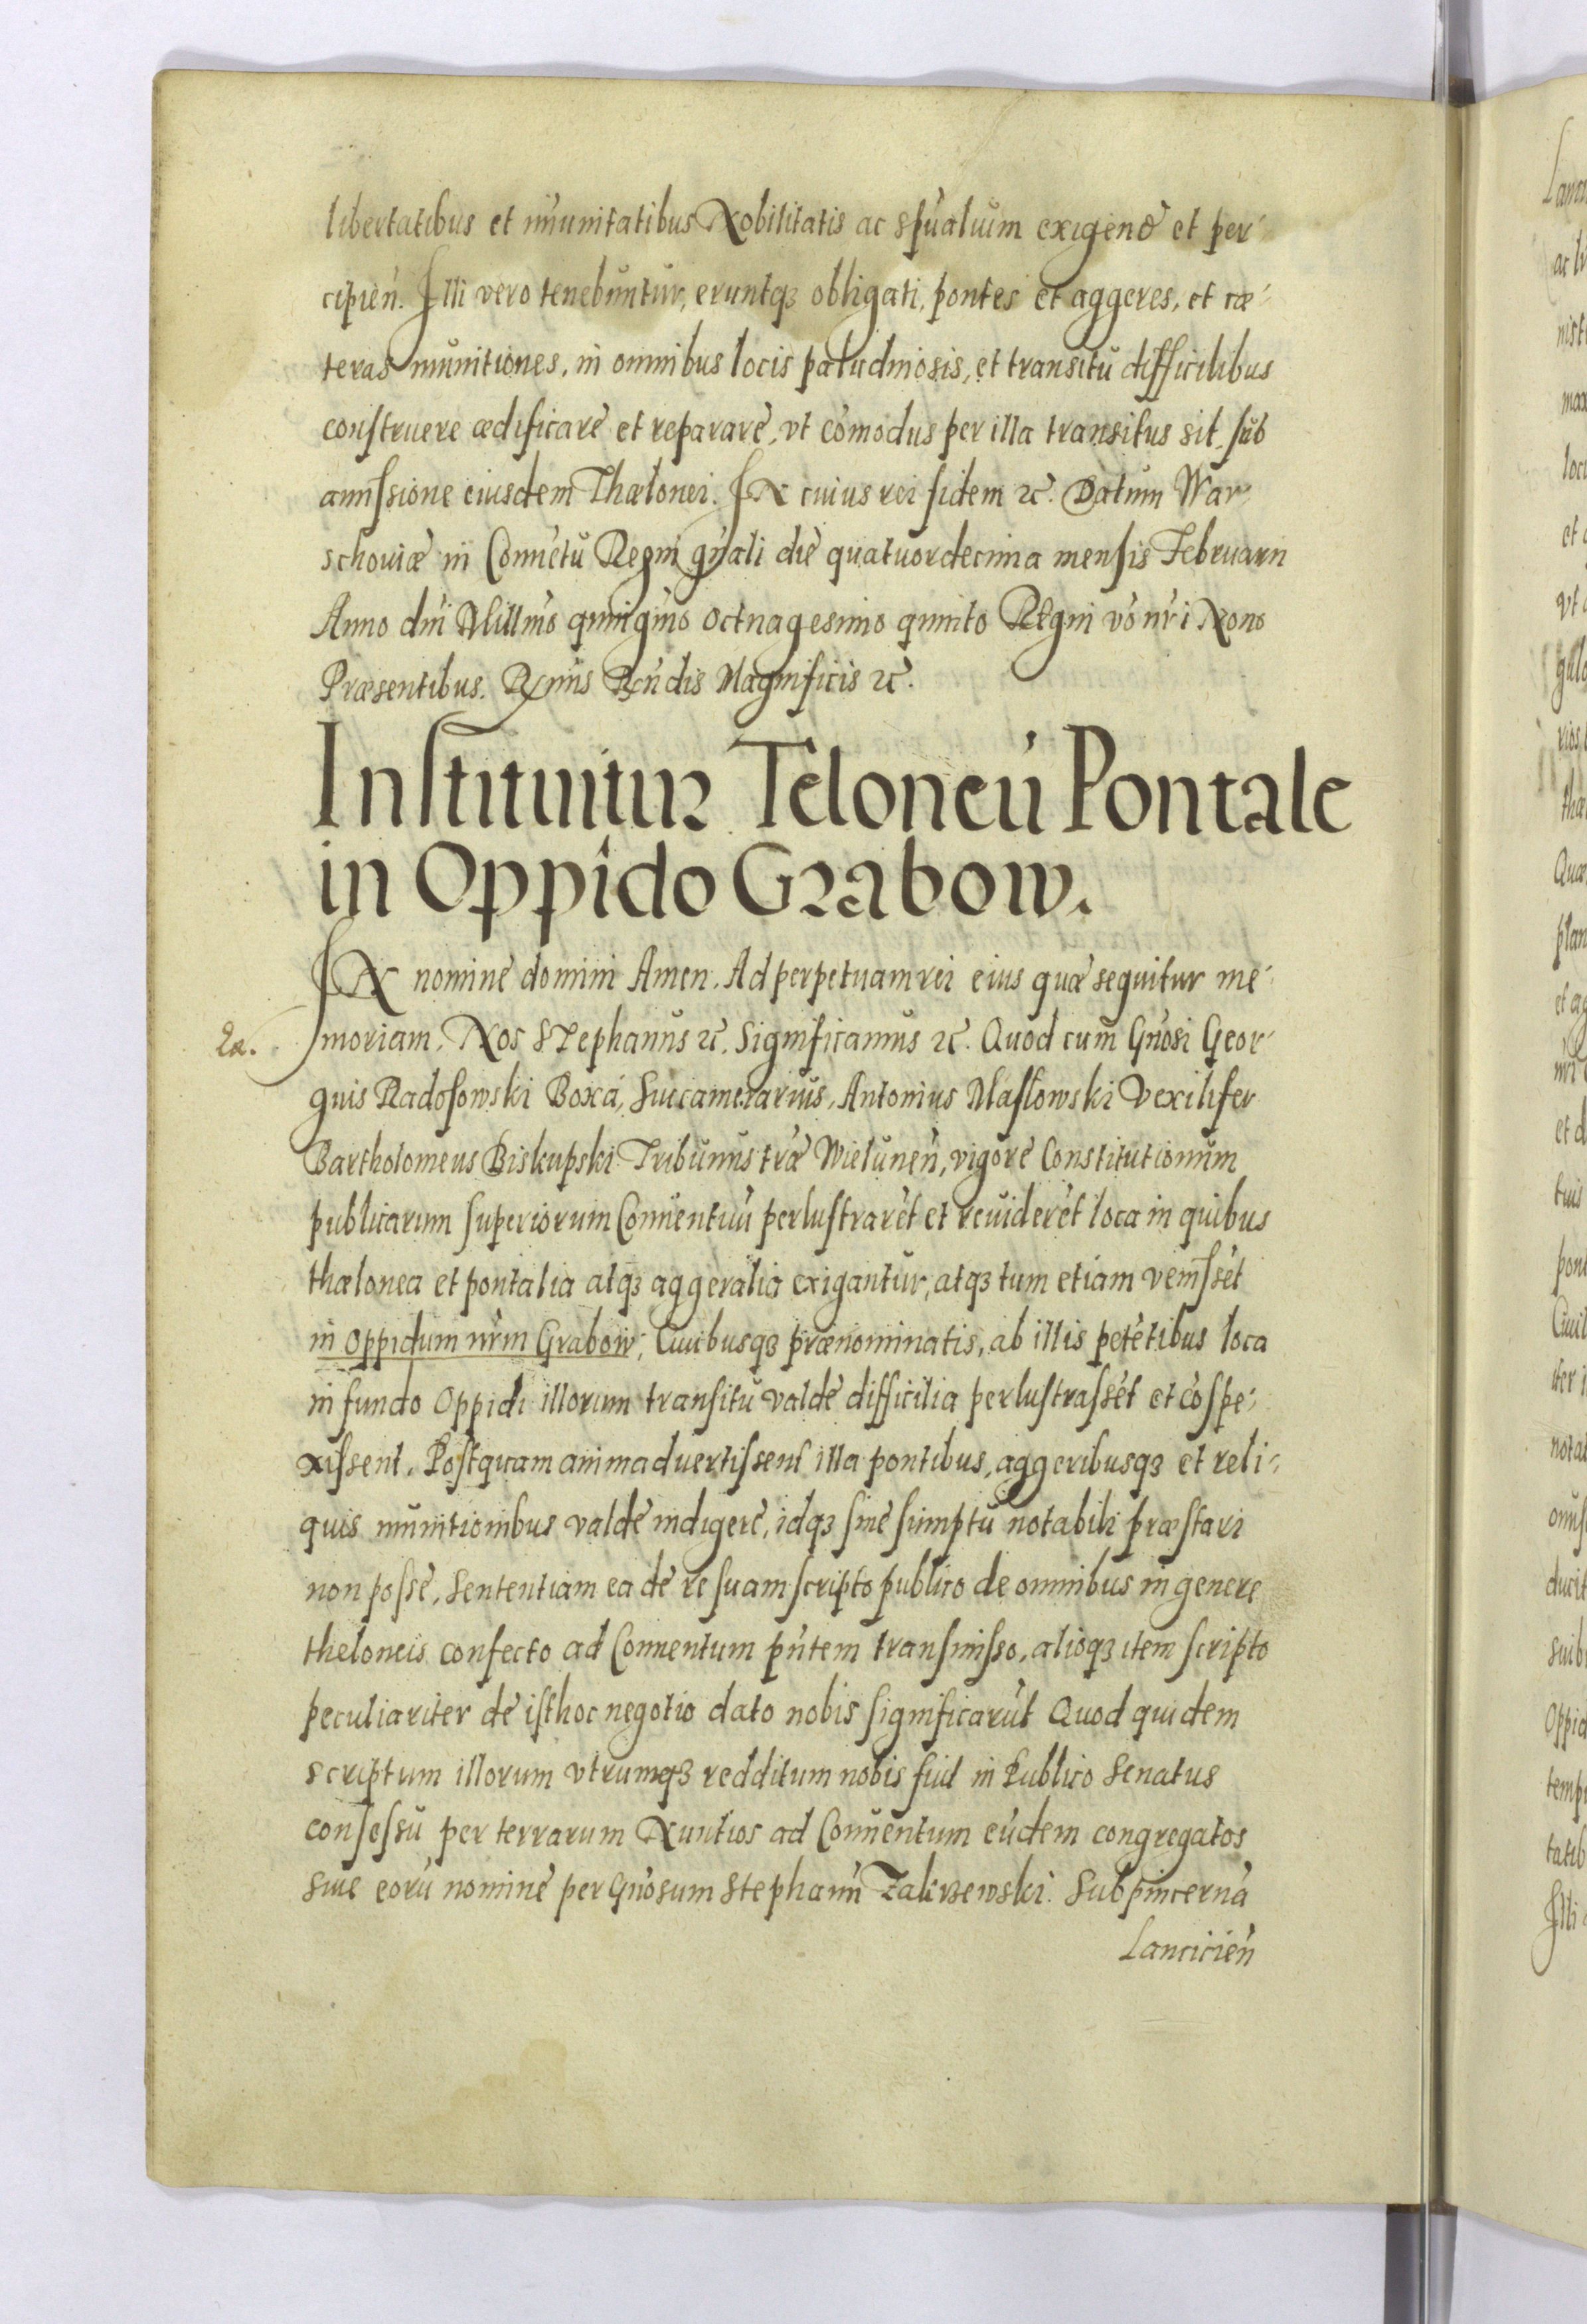 libertatibus et im̄unitatibus Nobilitatis ac sp̄ualuum exigend et per-
cipien̄. Illi vero tenebuntur, eruntqꝫ obligati, pontes et aggeres, et cæ-
teras munitiones, in omnibus locis paludinosis, et transitu difficilibus
construere ædificare et reparare, vt com̄odus per illa transitus sit, sub
amissione eiusdem Thælonei. IN cuius rei fidem ꝛc̄. Datum War-
schouiæ in Conuētu Regni gn̄ali die quatuordecima mensis Februarii
Anno dn̄i Mill̄mo quing̃mo octuagesimo quinto Regni vō nr̄i Nono
Præsentibus. Rx̄mis Rēn̄dis Magnificis ꝛc̄.
Instituitur Teloneū Pontale
in Oppido Grabow.
IN nomine domini Amen. Ad perpetuam rei eius quæ sequitur me-
Ra. moriam. Nos STephanus ꝛc̄. Significamus ꝛc̄. Quod cum Gn̄osi Geor-
guis Radosowski Boxa, Succamerarius, Antonius Maslowski Vexilifer
Bartholomeus Biskupski Tribunus træ Wielunen̄, vigore Constitutionum
publicarum superiorum Conuentuū perlustrarēt et reuiderēt loca in quibus
thælonea et pontalia atqꝫ aggeralia exigantur, atqꝫ tum etiam venissēt
in Oppidum nr̄m Grabow, Ciuibusqꝫ prænominatis, ab illis petētibus loca
in fundo Oppidi illorum transitu valde difficilia perlustrassēt et cōspe-
xissent. Postquam animaduertissent illa pontibus, aggeribusqꝫ et reli-
quis munitionibus valde indigere, idqꝫ sine sumptu notabili præstari
non posse, Sententiam ea de re suam scripto publico de omnibus in genere
theloneis confecto ad Conuentum pn̄tem transmisso, alioqꝫ item scripto
peculiariter de isthoc negotio dato nobis significarūt Quod quidem
scriptum illorum vtrumqꝫ redditum nobis fuit in Publico Senatus
consessu per terrarum Nuntios ad Conuentum eūdem congregatos
siue eorū nomine per Gn̄osum Stephanū Zakrzewski Subpincernā
Lancicien̄